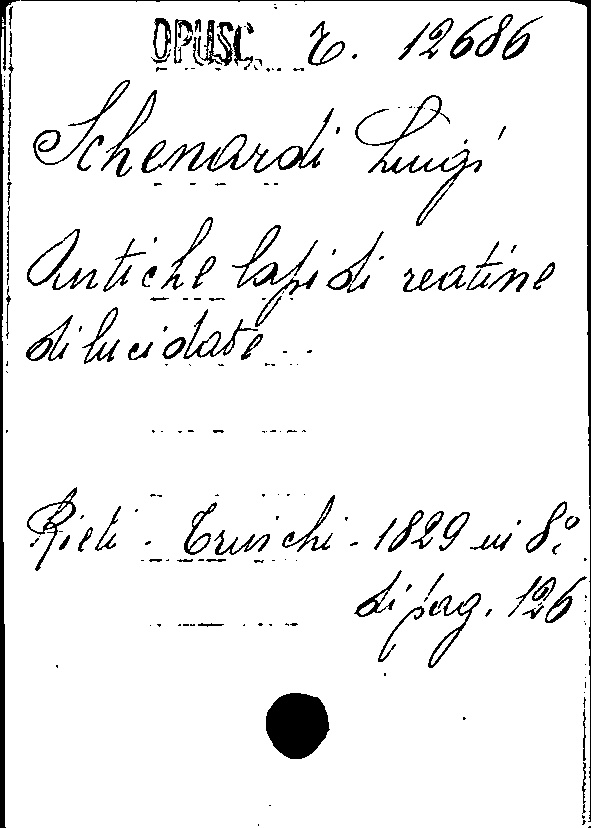 OPUSC. T. 12686
Schenardi Luigi
Antiche lapidi reatine
dilucidate..
Rieti - Trinchi - 1829 in 8º.
di pag. 126